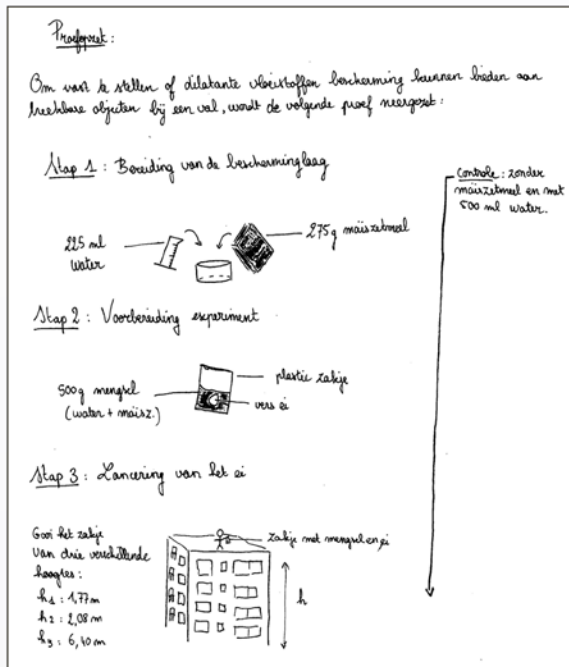 Proefopzet:
Om vast te stellen of dilatante vloeistoffen bescherming kunnen bieden aan
breekbare objecten bij een val, wordt de volgende proef neergezet:
Stap 1: Bereiding van de beschermlaag
Controle: zonder
maïszetmeel en met
500 ml water.
225 ml
water
275g maïszetmeel
Stap 2: Voorbereiding experiment
500g mengsel
(water + maïsz.)
plastic zakje
vers ei
Stap 3: Lancering van het ei
Gooi het zakje
van drie verschillende
hoogtes:
h1: 1,77m
h2: 2,08m
h3: 6,40m
zakje met mengsel en ei
h